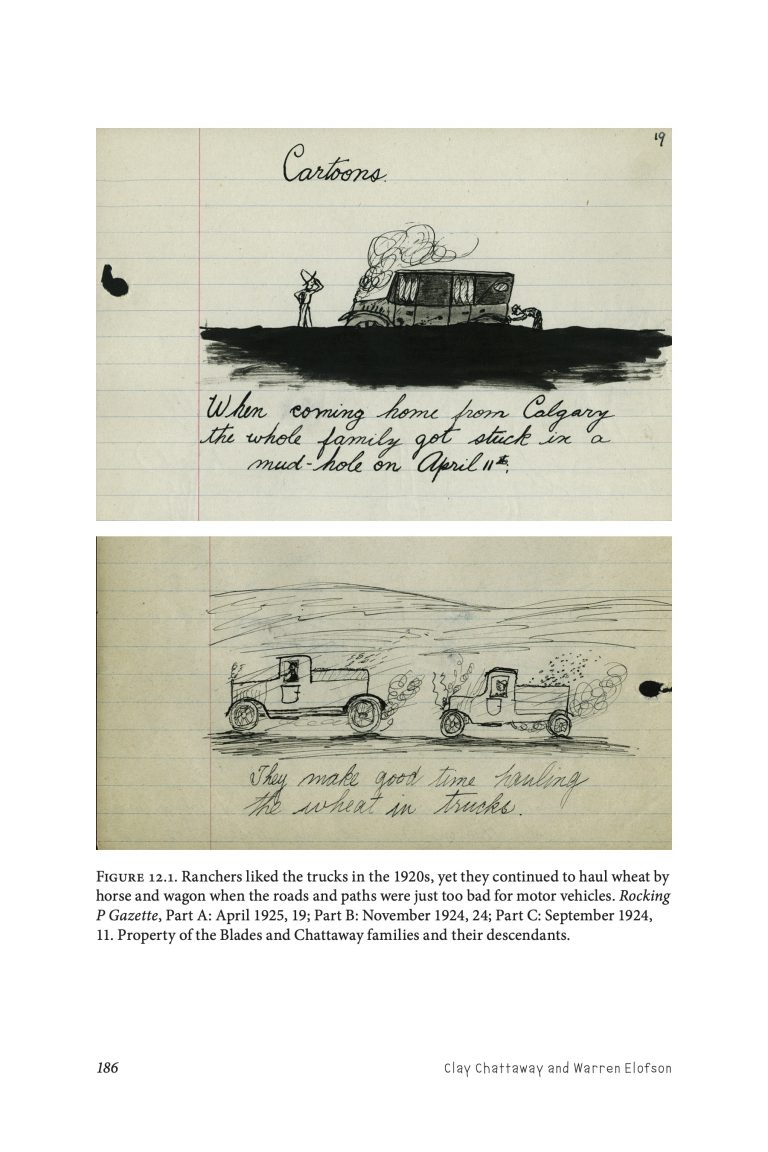 19
Cartoons.
When coming home from Calgary
the whole family got stuck in a
mud-hole on April 11th.
They make good time hauling
the wheat in trucks.
Figure 12.1. Ranchers liked the trucks in the 1920s, yet they continued to haul wheat by
horse and wagon when the roads and paths were just too bad for motor vehicles. Rocking
P Gazette, Part A: April 1925, 19; Part B: November 1924, 24; Part C: September 1924,
11. Property of the Blades and Chattaway families and their descendants.
186
Clay Chattaway and Warren Elofson